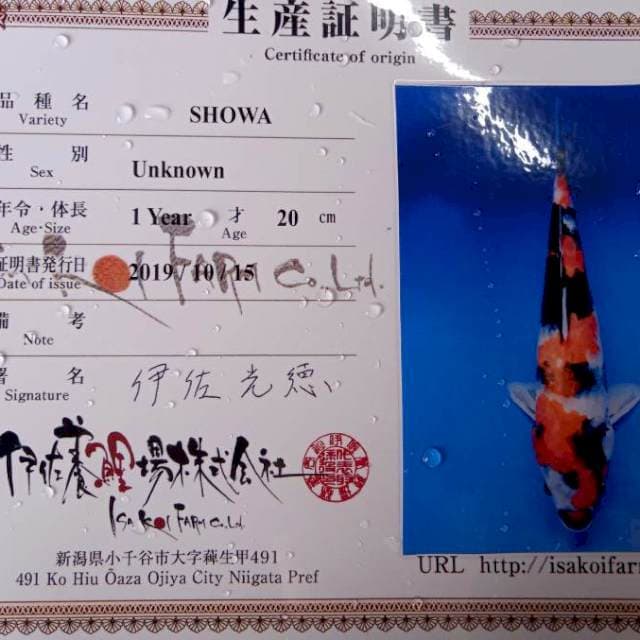 生産証明書
Certificate of origin
品種名 SHOWA
Variety
性別 Unknown
Sex
年令・体長 1 Year 才 20 cm
Age·Size Age
証明書発行日 2019 / 10 / 15
Date of issue
Koi Farm Co.,Ltd.
備考
Note
署名 伊佐光徳
Signature
伊佐養鯉場株式会社
Isa Koi Farm Co.,Ltd.
新潟県小千谷市大字薭生甲491
491 Ko Hiu Ōaza Ojiya City Niigata Pref
URL http://isakoifar